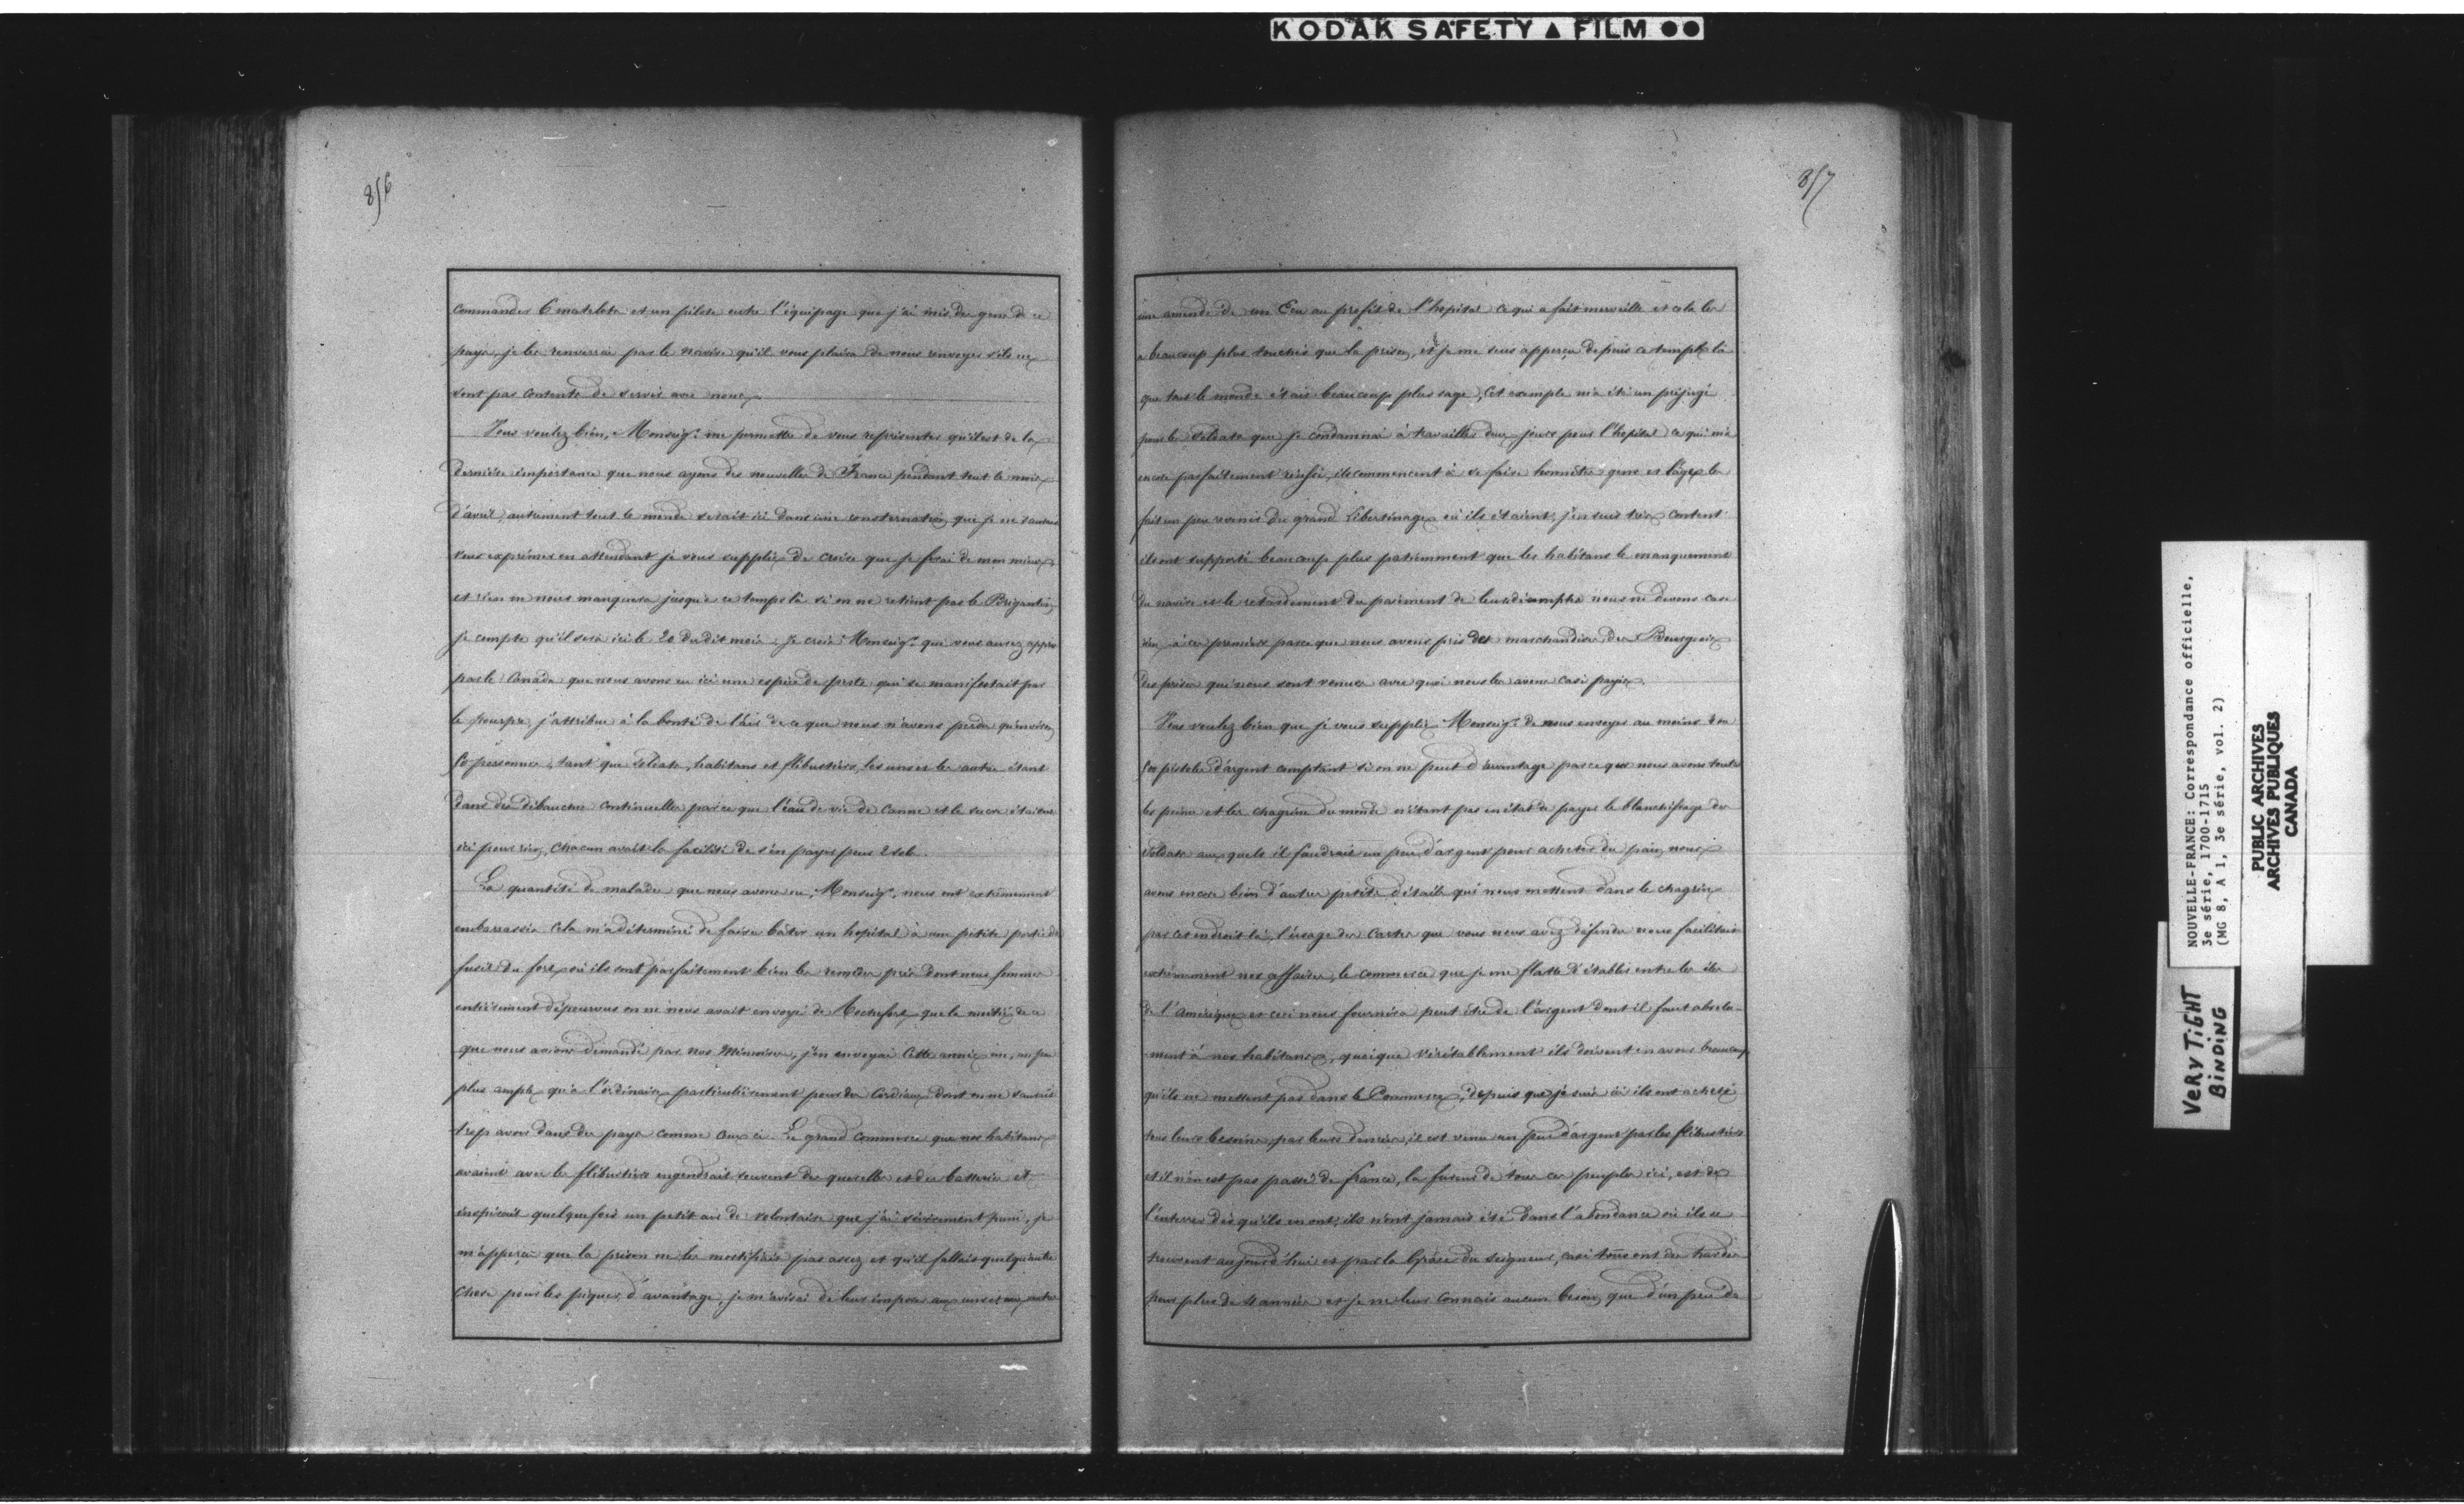 KODAK SAFETY ▲ FILM ●●
856
commander 6 matelots et un pilote outre l'équipage que j'ai mis des gens de ce
pays, je les renverrai par le navire qu'il vous plaira de nous renvoyer s'ils ne
sont pas contents de servir avec nous.
Vous voulez bien, Monseigr. me permettre de vous représenter qu'il est de la
dernière importance que nous ayons des nouvelles de France pendant tout le mois
d'avril, autrement tout le monde serait ici dans une consternation que je ne saurais
vous exprimer en attendant je vous supplie de croire que je ferai de mon mieux,
et rien ne nous manquera jusqu'à ce temps là si on ne retient pas le Brigantin,
je compte qu'il sera ici le 20 du dit mois. Je crois Monseigr. que vous aurez appris
par le Canada que nous avons eu ici une espèce de peste qui se manifestait par
le pourpre, j'attribue à la bonté de l'air de ce que nous n'avons perdu qu'environ
60 personnes, tant que soldats, habitans et flibustiers, les uns et les autres étant
dans des débauches continuelles parce que l'eau de vie de canne et le sucre étaient
ici pour rien, chacun avait la facilité de s'en payer pour 2 sols.
La quantité de malades que nous avons eu, Monseigr. nous ont extrêmement
embarrassés cela m'a déterminé de faire bâtir un hopital à une petite portée de
fusil du fort où ils sont parfaitement bien les remèdes près dont nous sommes
entièrement dépourvus on ne nous avait envoyé de Rochefort que la moitié de ce
que nous avions demandé par nos Mémoires, j'en envoyai cette année un, un peu
plus ample qu'à l'ordinaire particulièrement pour des Cordiaux dont on ne saurait
trop avoir dans des pays comme ceux ci. Le grand commerce que nos habitans
avaient avec les flibustiers engendrait souvent des querelles et des batteries et
inspirait quelquefois un petit air de volontaire que j'ai sévèrement puni, je
m'apperçu que la prison ne les mortifiait pas assez et qu'il fallait quelqu'autre
chose pour les piquer d'avantage, je m'avisai de leur imposer aux uns et aux autres
857
une amende de un Ecu au profit de l'hopital ce qui a fait merveille et cela les
a beaucoup plus touchés que la prison, et je me suis apperçu depuis ce temps là
que tout le monde était beaucoup plus sage, cet exemple m'a été un préjugé
pour les soldats que je condamnai à travailler deux jours pour l'hopital ce qui m'a
encore parfaitement réussi, ils commencent à se faire honnêtes gens et l'âge les
fait un peu revenir du grand libertinage où ils étaient, j'en suis très content
ils ont supporté beaucoup plus patiemment que les habitans le manquement
du navire et le retardement du paiement de leurs décomptes nous ne devons casi
rien à ces premiers parce que nous avons pris des marchandises des Bourgeois
des prises qui nous sont venues avec quoi nous les avons casi payés.
Vous voulez bien que je vous supplie Monseigr. de nous envoyer au moins
pistoles d'argent comptant si on ne peut d'avantage parce que nous avons toutes
les peines et les chagrins du monde n'étant pas en état de payer le blanchissage des
soldats auxquels il faudrait un peu d'argent pour acheter du pain, nous
avons encore bien d'autres petits détails qui nous mettent dans le chagrin
par cet endroit là, l'usage des cartes que vous nous avez défendu nous facilitait
extrêmement nos affaires, le commerce que je me flatte d'établir entre les iles
de l'Amérique et ceci nous fournira peut être de l'argent dont il faut absolu-
ment à nos habitans, quoique véritablement ils doivent en avoir beaucoup
qu'ils ne mettent pas dans le Commerce, depuis que je suis ici ils ont acheté
tous leurs besoins par leurs denrées, il est venu un peu d'argent par les flibustiers
et il n'en est pas passé de france, la fureur de tous ces peuples ici, est de
l'enterrer dès qu'ils en ont, ils n'ont jamais été dans l'abondance où ils se
trouvent aujourd'hui et par la Grâce du Seigneur, casi tous ont des hardes
pour plus de 4 années et je ne leur connais aucun besoin que d'un peu de
NOUVELLE-FRANCE: Correspondance officielle,
3e série, 1700-1715
(MG 8, A 1, 3e série, vol. 2)
PUBLIC ARCHIVES
ARCHIVES PUBLIQUES
CANADA
VERY TIGHT
BINDING